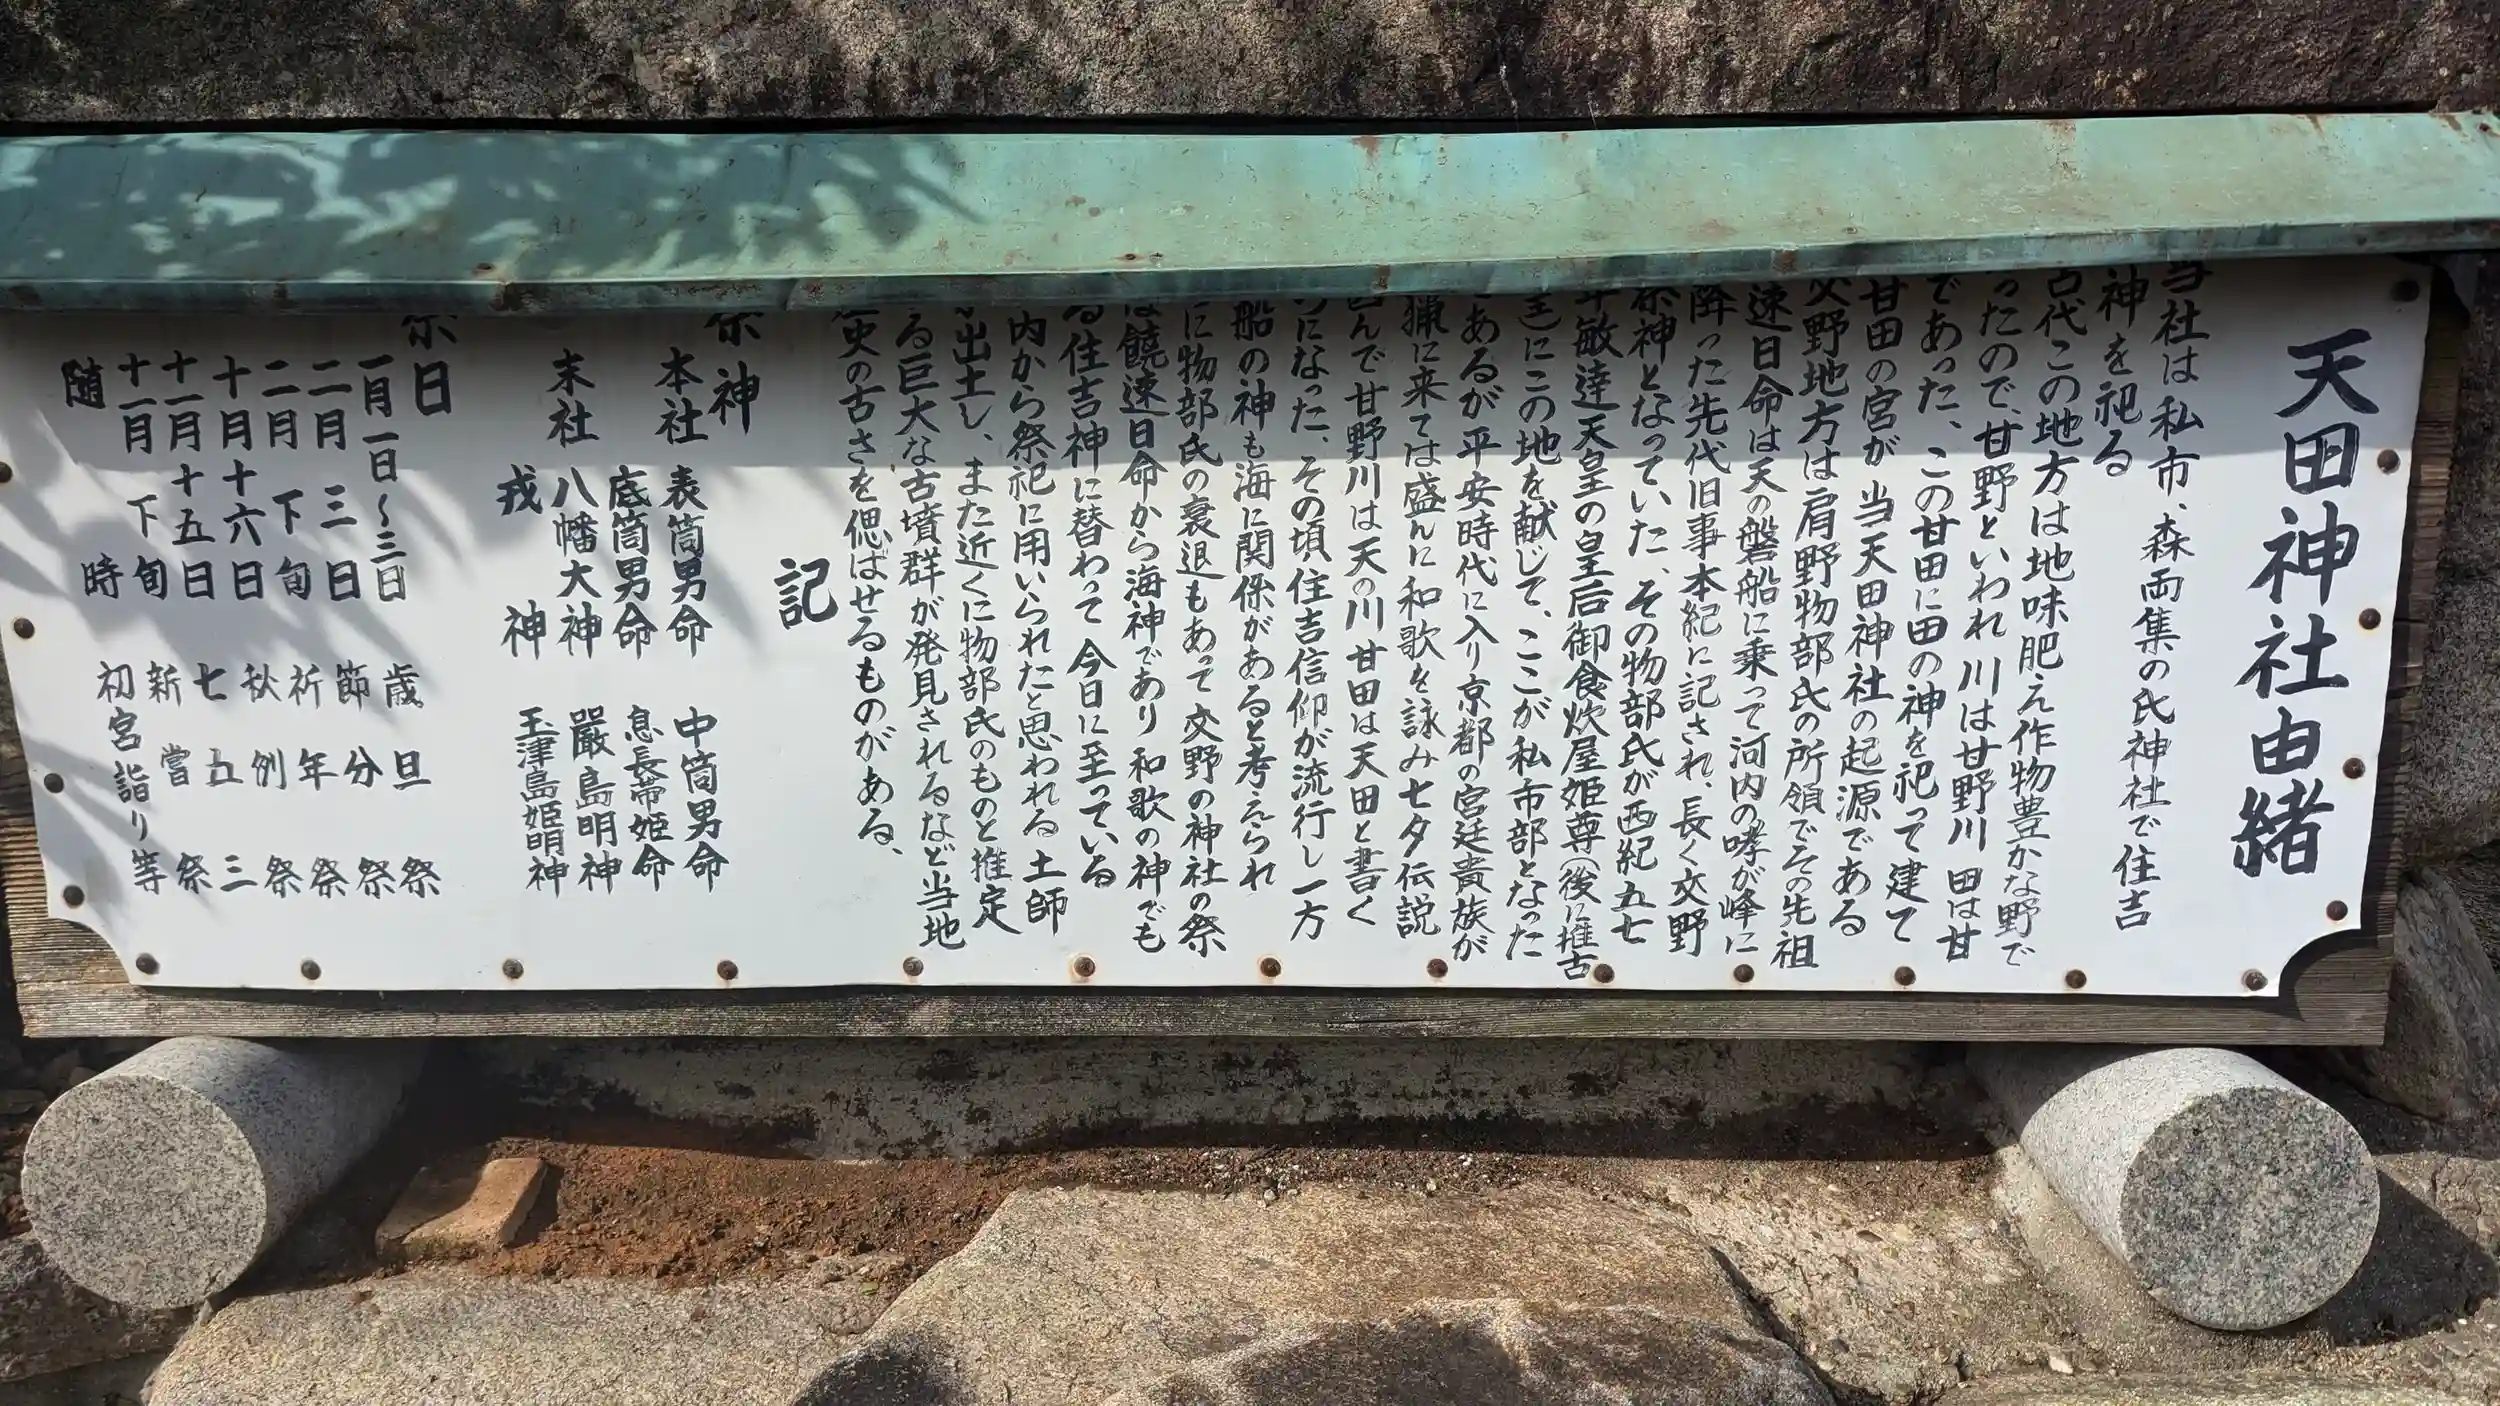 天田神社由緒
当社は私市、森両集の氏神社で住吉
神を祀る
古代この地方は地味肥え作物豊かな野で
ったので、甘野といわれ川は甘野川 田は甘
であった、この甘田に田の神を祀って建て
甘田の宮が 当天田神社の起源である
交野地方は肩野物部氏の所領でその先祖
速日命は天の磐船に乗って河内の哮が峰に
降った先代旧事本紀に記され、長く交野
祭神となっていた、その物部氏が西紀五七
年敏達天皇の皇后御食炊屋姫尊(後に推古
)にこの地を献じて、ここが私市部となった
あるが平安時代に入り京都の宮廷貴族が
猟に来ては盛んに和歌を詠み七夕伝説
んで甘野川は天の川 甘田は天田と書く
うになった、その頃住吉信仰が流行し一方
船の神も海に関係があると考えられ
に物部氏の衰退もあって交野の神社の祭
は饒速日命から海神であり和歌の神でも
る住吉神に替わって今日に至っている
内から祭祀に用いられたと思われる土師
出土し、また近くに物部氏のものと推定
る巨大な古墳群が発見されるなど当地
歴史の古さを偲ばせるものがある、
記
祭神
本社 表筒男命 中筒男命
底筒男命 息長帯姫命
末社 八幡大神 嚴島明神
戎神 玉津島姫明神
祭日
一月一日〜三日 歳旦祭
二月三日 節分祭
二月下旬 祈年祭
十月十六日 秋例祭
十一月十五日 七五三
十一月下旬 新嘗祭
随時 初宮詣り等